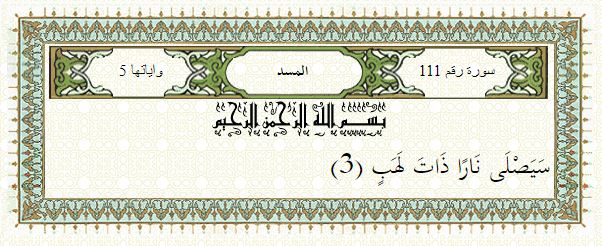 سورة رقم 111 المسد وآياتها 5
بسم الله الرحمن الرحيم
سَيَصْلَى نَارًا ذَاتَ لَهَبٍ (3)